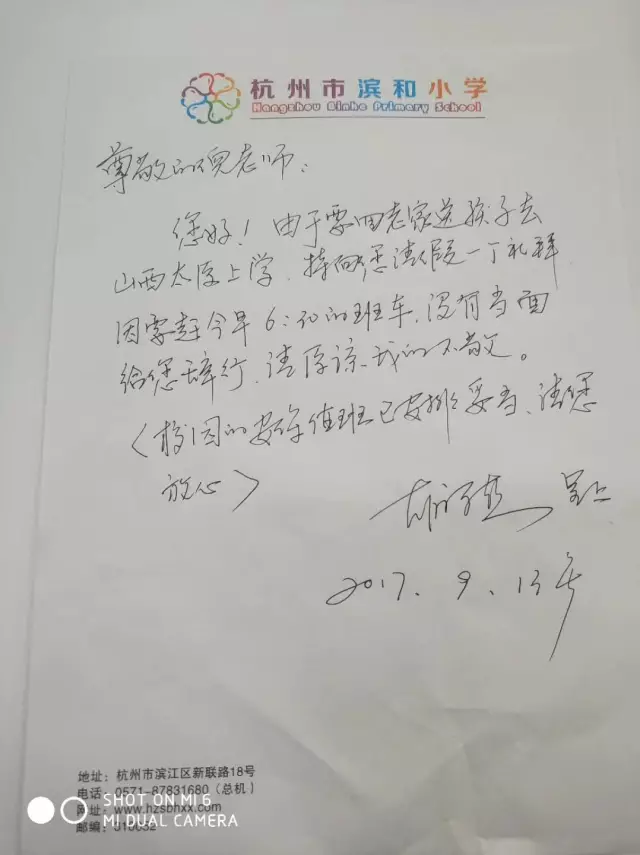 杭州市滨和小学
Hangzhou Binhe Primary School
尊敬的倪老师:
您好!由于要回老家送孩子去
山西太原上学,特向您请假一个礼拜
因需赶今早6:50的班车,没有当面
给您辞行,请原谅我的不敬。
(校园的安保值班已安排妥当,请您
放心)
呈上
2017.9.13号
地址:杭州市滨江区新联路18号
电话:0571-87831680(总机)
网址:www.hzsbhxx.com
邮编:310052
SHOT ON MI 6
MI DUAL CAMERA